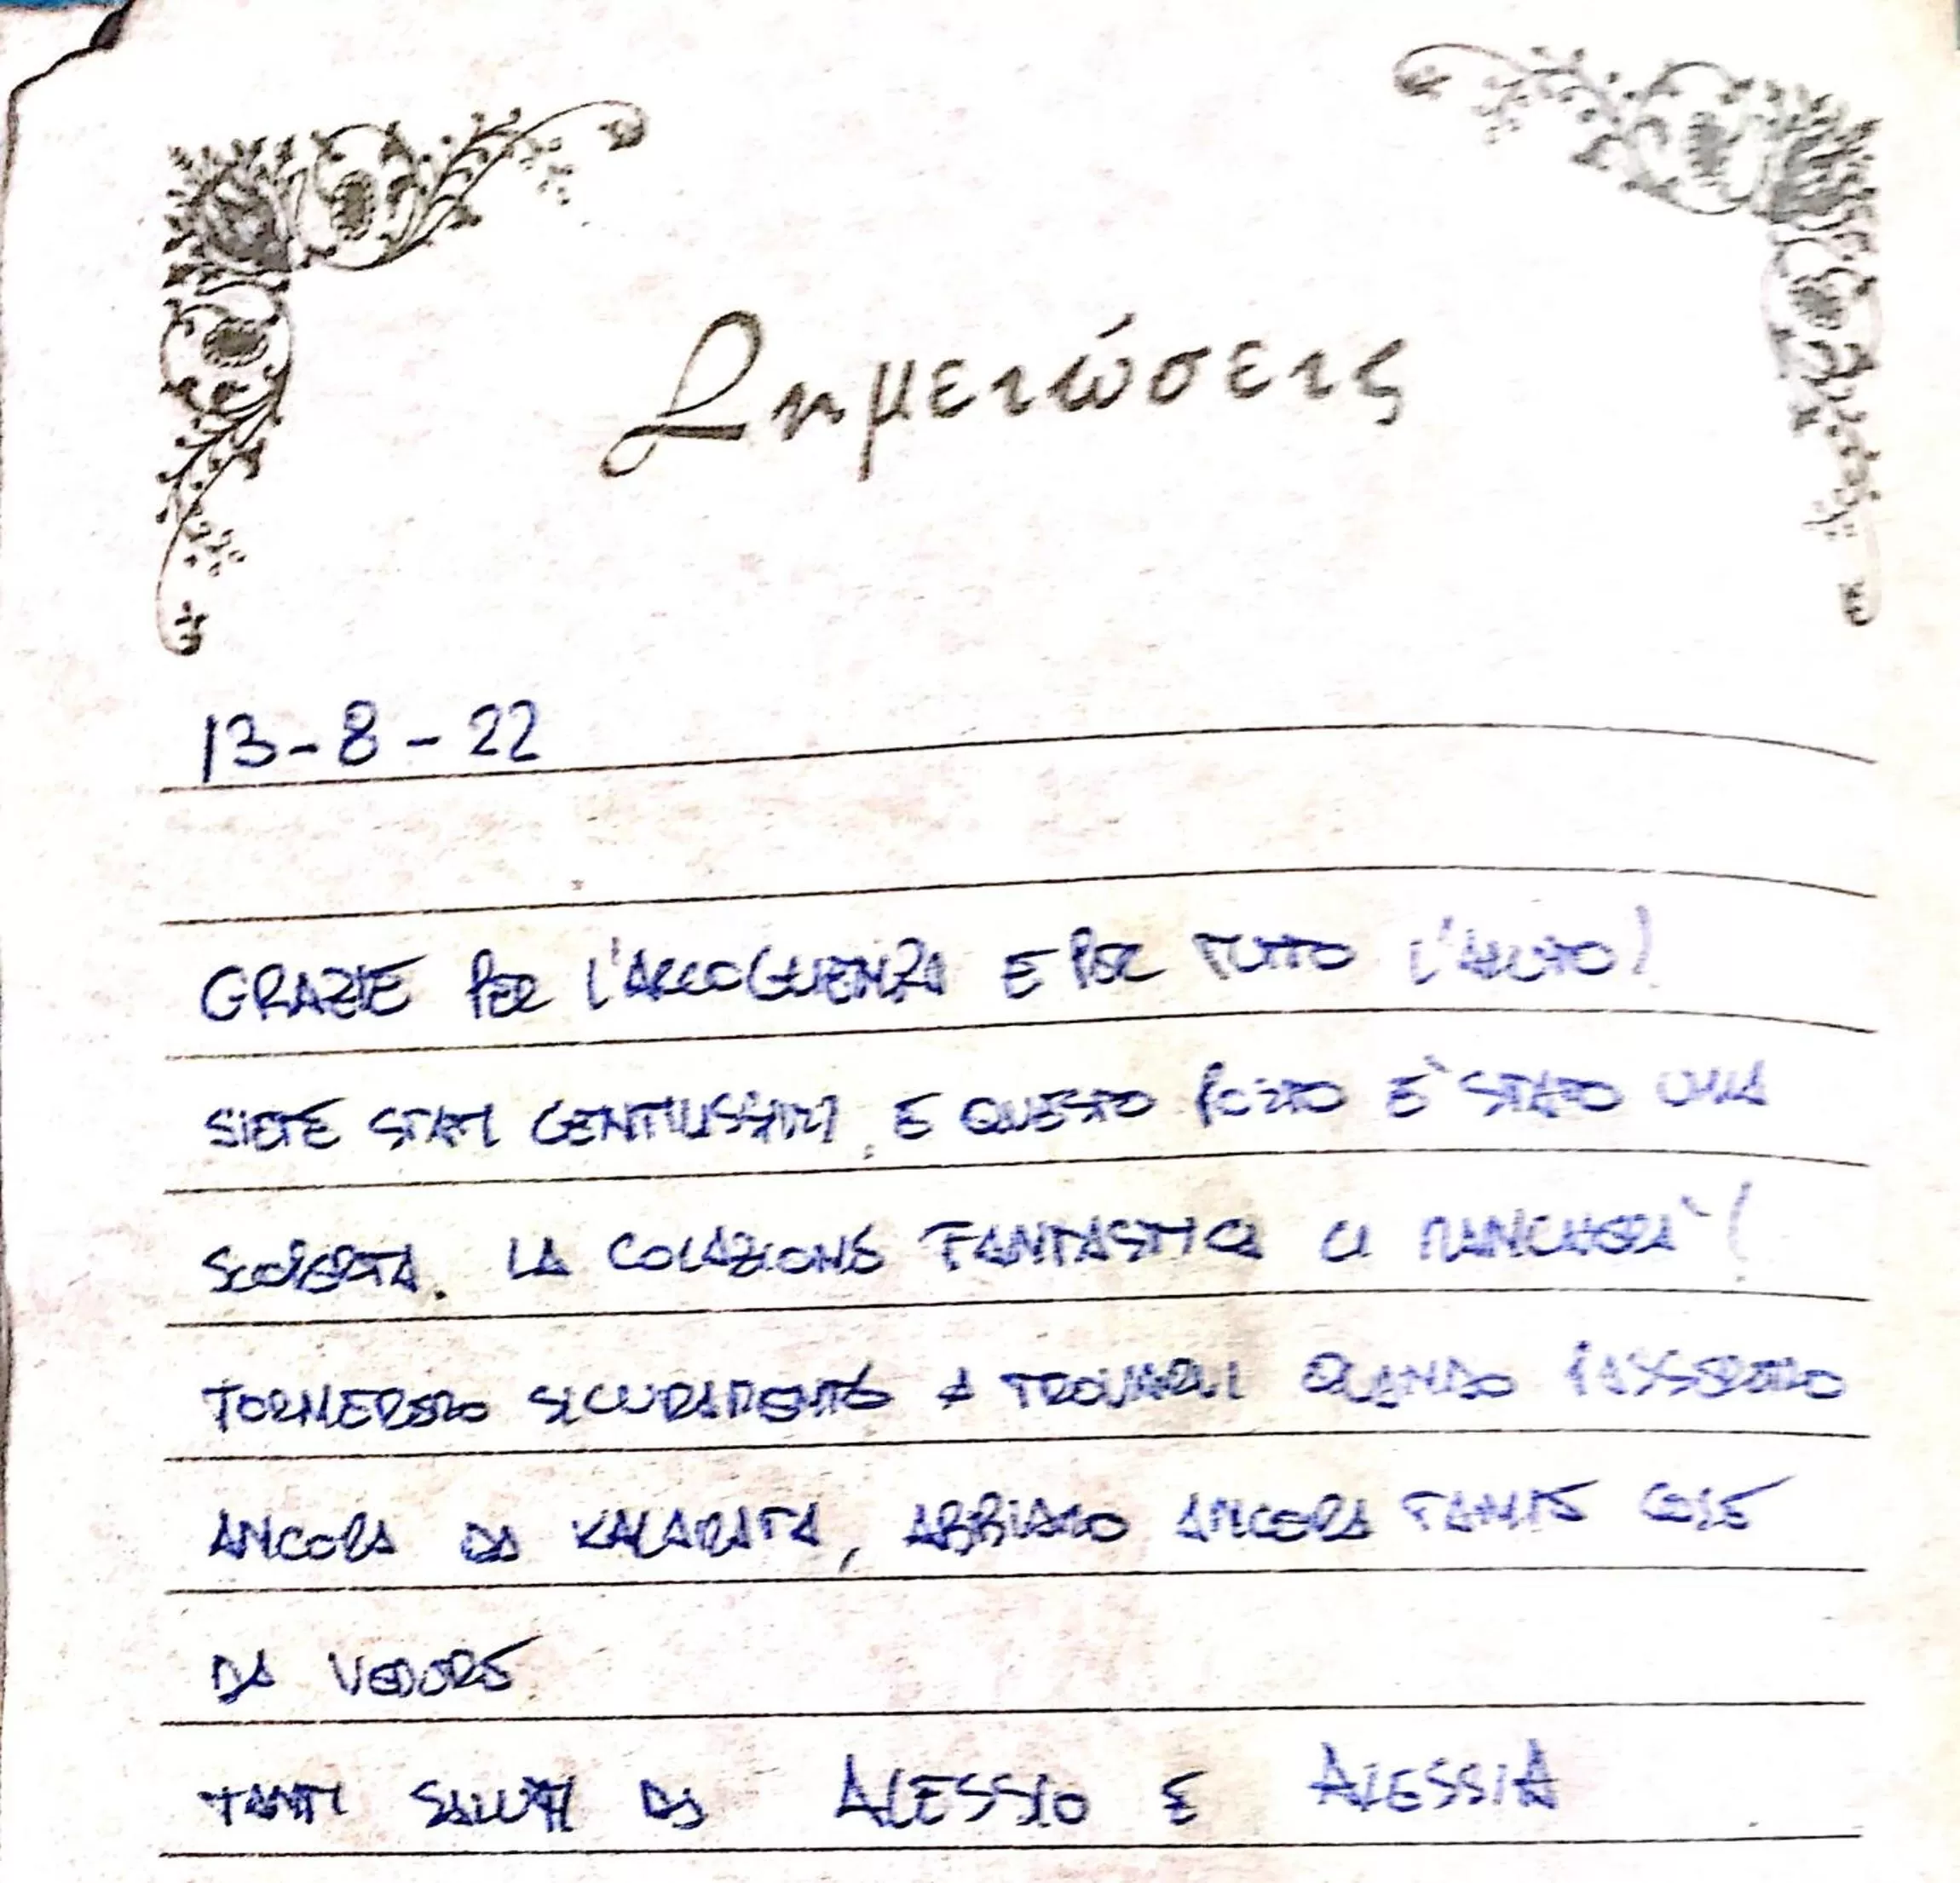 Σημειώσεις
13-8-22
GRAZIE PER L'ACCOGLIENZA E PER TUTTO L'AIUTO!
SIETE STATI GENTILISSIMI E QUESTO POSTO E' STATO UNA
SCOPERTA. LA COLAZIONE FANTASTICA CI MANCHERA'!
TORNEREMO SICURAMENTE A TROVARVI QUANDO PASSEREMO
ANCORA DA KALABATA, ABBIAMO ANCORA TANTE COSE
DA VEDERE
TANTI SALUTI DA ALESSIO E ALESSIA